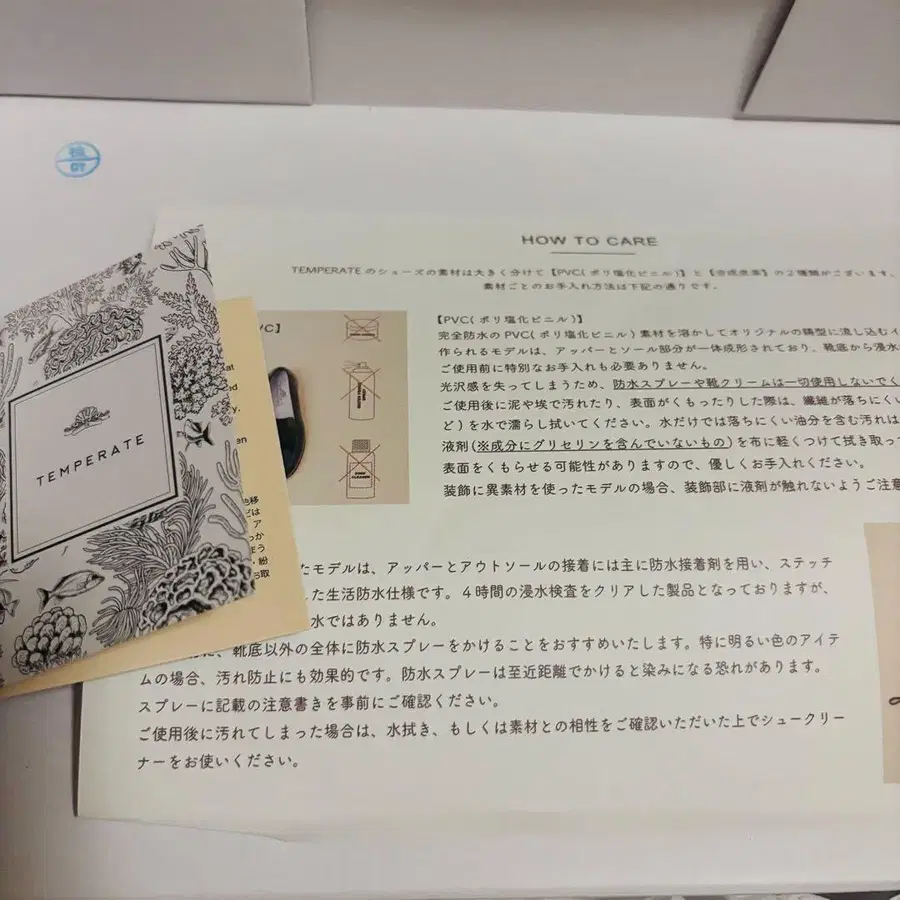 検
GT
HOW TO CARE
TEMPERATE のシューズの素材は大きく分けて【PVC( ポリ塩化ビニル )】と【合成皮革】の2種類がございます。
素材ごとのお手入れ方法は下記の通りです。
VC】
【PVC( ポリ塩化ビニル )】
完全防水の PVC( ポリ塩化ビニル ) 素材を溶かしてオリジナルの鋳型に流し込むイ
作られるモデルは、アッパーとソール部分が一体成形されており、靴底から浸水
ご使用前に特別なお手入れも必要ありません。
光沢感を失ってしまうため、防水スプレーや靴クリームは一切使用しないでく
ご使用後に泥や埃で汚れたり、表面がくもったりした際は、繊維が落ちにくい
ど ) を水で濡らし拭いてください。水だけでは落ちにくい油分を含む汚れは
液剤 (※成分にグリセリンを含んでいないもの) を布に軽くつけて拭き取って
表面をくもらせる可能性がありますので、優しくお手入れください。
装飾に異素材を使ったモデルの場合、装飾部に液剤が触れないようご注意
TEMPERATE
たモデルは、アッパーとアウトソールの接着には主に防水接着剤を用い、ステッチ
した生活防水仕様です。4時間の浸水検査をクリアした製品となっておりますが、
水ではありません。
に、靴底以外の全体に防水スプレーをかけることをおすすめいたします。特に明るい色のアイテ
ムの場合、汚れ防止にも効果的です。防水スプレーは至近距離でかけると染みになる恐れがあります。
スプレーに記載の注意書きを事前にご確認ください。
ご使用後に汚れてしまった場合は、水拭き、もしくは素材との相性をご確認いただいた上でシュークリー
ナーをお使いください。